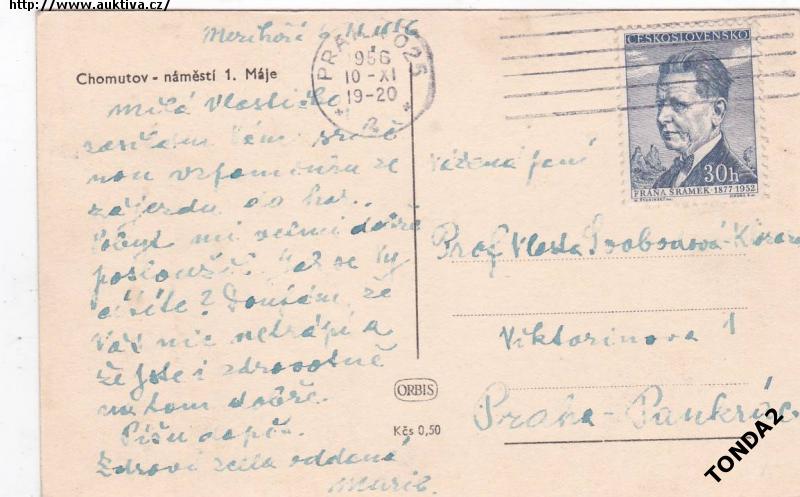 http://www.auktiva.cz/
PRAHA 025
1956
10-XI
19-20
ČESKOSLOVENSKO
30h
FRÁŇA ŠRÁMEK·1877-1952
Chomutov - náměstí 1. Máje
Milá Vlastičko
zasílám Vám srdeč
nou vzpomínku ze
zájezdu do hor.
Pobyt mi velmi dobře
poslouží. Jak se Vy
cítíte? Doufám, že
Vás nic netrápí a
že jste i zdravotně
na tom dobře.
Píšu dopis.
Zdraví zcela oddaná
Marie.
Vážená paní
Prof Vlasta Svobodová
Viktorinova 1
Praha-Pankrác
ORBIS
Kčs 0,50
TONDA2